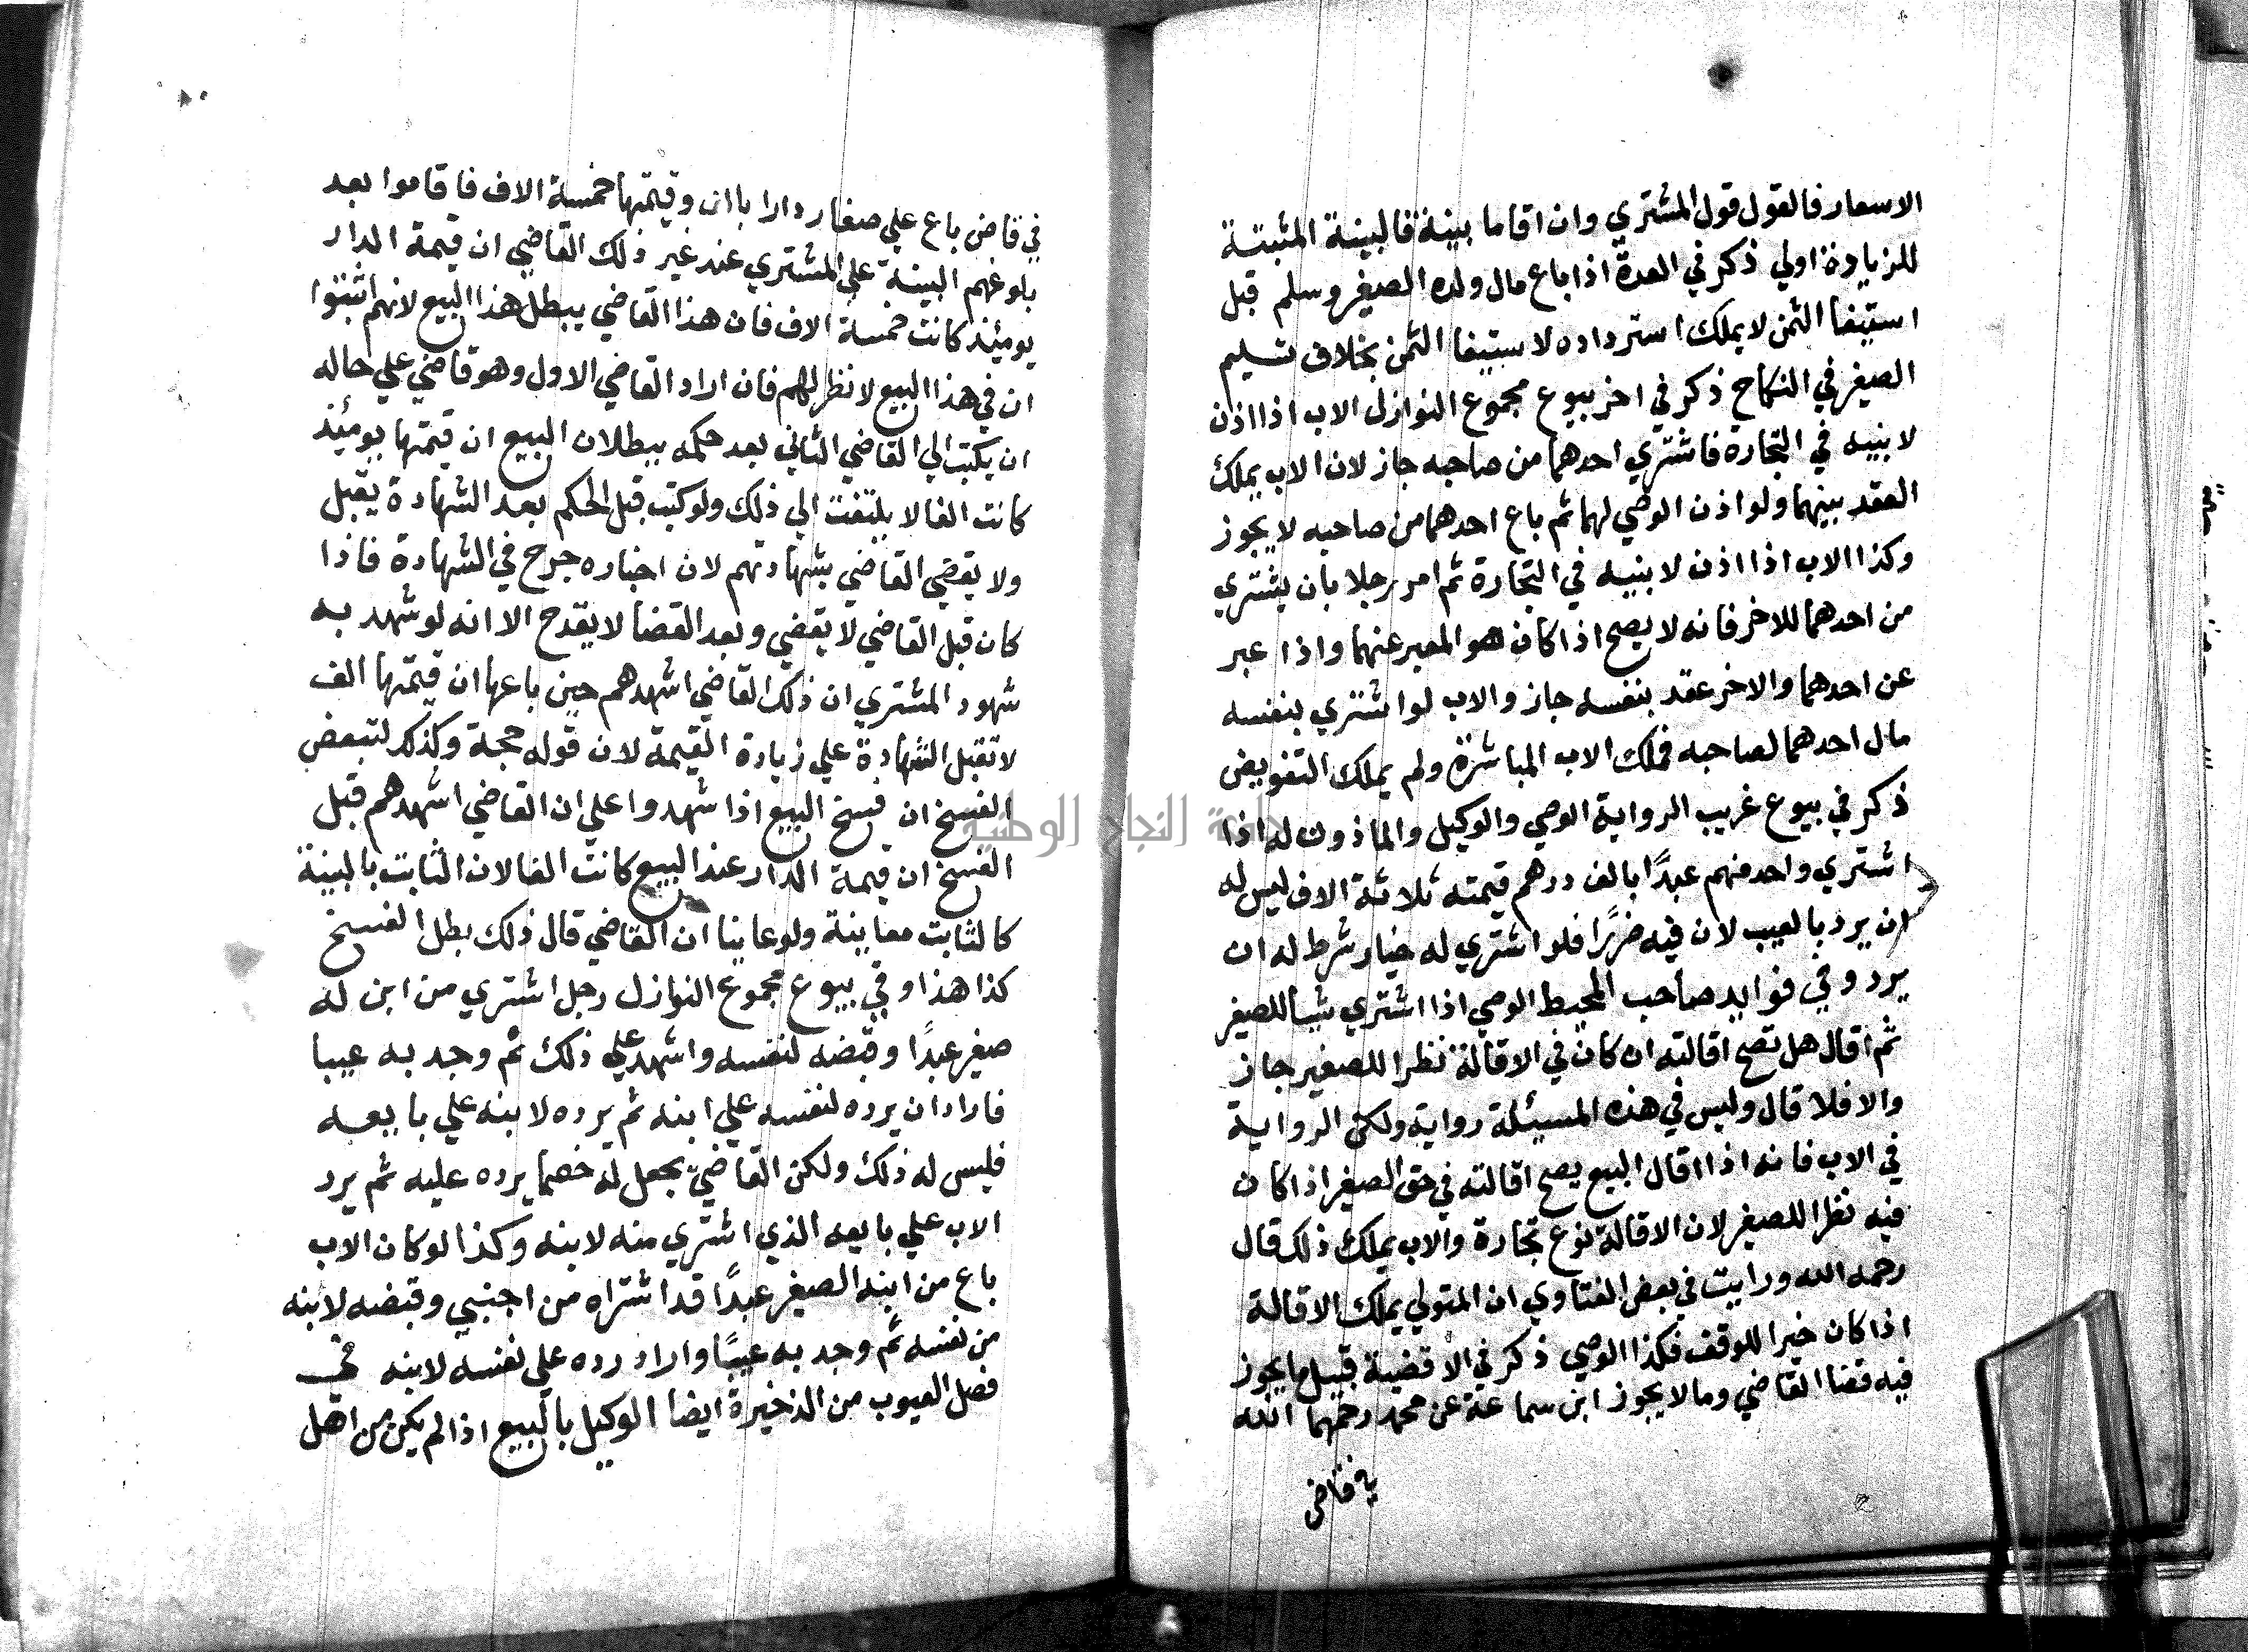 الاسعار فالقول قول المشتري وان اقاما بينة فالبينة المثبتة
للزيادة اولي ذكر في العدة اذا باع مال ولده الصغير وسلم قبل
استيفا الثمن لا يملك استرداده لاستيفا الثمن بخلاف تسليم
الصغير في النكاح ذكر في اخر بيوع مجموع النوازل الاب اذا اذن
لابنيه في التجارة فاشتري احدهما من صاحبه جاز لان الاب يملك
العقد بينهما ولو اذن الوصي لهما ثم باع احدهما من صاحبه لا يجوز
وكذا الاب اذا اذن لابنيه في التجارة ثم امر رجلا بان يشتري
من احدهما للاخر فانه لا يصح اذا كان هو المعبر عنهما واذا عبر
عن احدهما والاخر عقد بنفسه جاز والاب لو اشتري بنفسه
مال احدهما لصاحبه فملك الاب المباشرة ولم يملك التفويض
ذكر في بيوع غريب الرواية الوصي والوكيل والماذون له اذا
اشتري واحد منهم عبدًا بالف درهم قيمته ثلاثة الاف ليس له
ان يرد بالعيب لان فيه ضررًا فلو اشتري له خيار شرط له ان
يرد وفي فوايد صاحب المحيط الوصي اذا اشتري شيا للصغير
ثم اقال هل تصح اقالته ان كان في الاقالة نظرا للصغير جاز
والا فلا قال وليس في هذه المسئلة رواية ولكن الرواية
في الاب فانه اذا اقال البيع يصح اقالته في حق الصغير اذا كان
فيه نظرا للصغير لان الاقالة نوع تجارة والاب يملك ذلك قال
رحمه الله ورايت في بعض الفتاوي ان المتولي يملك الاقالة
اذا كان خيرا للوقف فكذا الوصي ذكر في الاقضية قبيل ما يجوز
فيه قضا القاضي وما لا يجوز ابن سماعة عن محمد رحمهما الله
في قاض
في قاض باع علي صغار دارا بالف وقيمتها خمسة الاف فاقاموا بعد
بلوغهم البينة علي المشتري عند غير ذلك القاضي ان قيمة الدار
يومئذ كانت خمسة الاف فان هذا القاضي يبطل هذا البيع لانهم اثبتوا
ان في هذا البيع لا نظر لهم فان اراد القاضي الاول وهو قاضي علي حاله
ان يكتب الي القاضي الثاني بعد حكمه ببطلان البيع ان قيمتها يومئذ
كانت الفا لا يلتفت الي ذلك ولو كتب قبل الحكم بعد الشهادة يقبل
ولا يقضي القاضي بشهادتهم لان اخباره جرح في الشهادة فاذا
كان قبل القاضي لا يقضي وبعد القضا لا يقدح الا انه لو شهد به
شهود المشتري ان ذلك القاضي اشهدهم حين باعها ان قيمتها الف
لا تقبل الشهادة علي زيادة القيمة لان قوله حجة وكذلك لنبعض
الفسخ ان فسخ البيع اذا شهدوا علي ان القاضي اشهدهم قبل
الفسخ ان قيمة الدار عند البيع كانت الفا لان الثابت بالبينة
كالثابت معاينة ولو عاينا ان القاضي قال ذلك بطل الفسخ
كذا هذا وفي بيوع مجموع النوازل رجل اشتري من ابن له
صغير عبدًا وقبضه لنفسه واشهد علي ذلك ثم وجد به عيبا
فاراد ان يرده لنفسه علي ابنه ثم يرده لابنه علي بايعه
فليس له ذلك ولكن القاضي يجعل له خصما يرده عليه ثم يرد
الاب علي بايعه الذي اشتري منه لابنه وكذا لو كان الاب
باع من ابنه الصغير عبدًا قد اشتراه من اجنبي وقبضه لابنه
من نفسه ثم وجد به عيبًا واراد رده علي نفسه لابنه في
فصل العيوب من الذخيرة ايضا الوكيل بالبيع اذا لم يكن من اهل
جامعة النجاح الوطنية